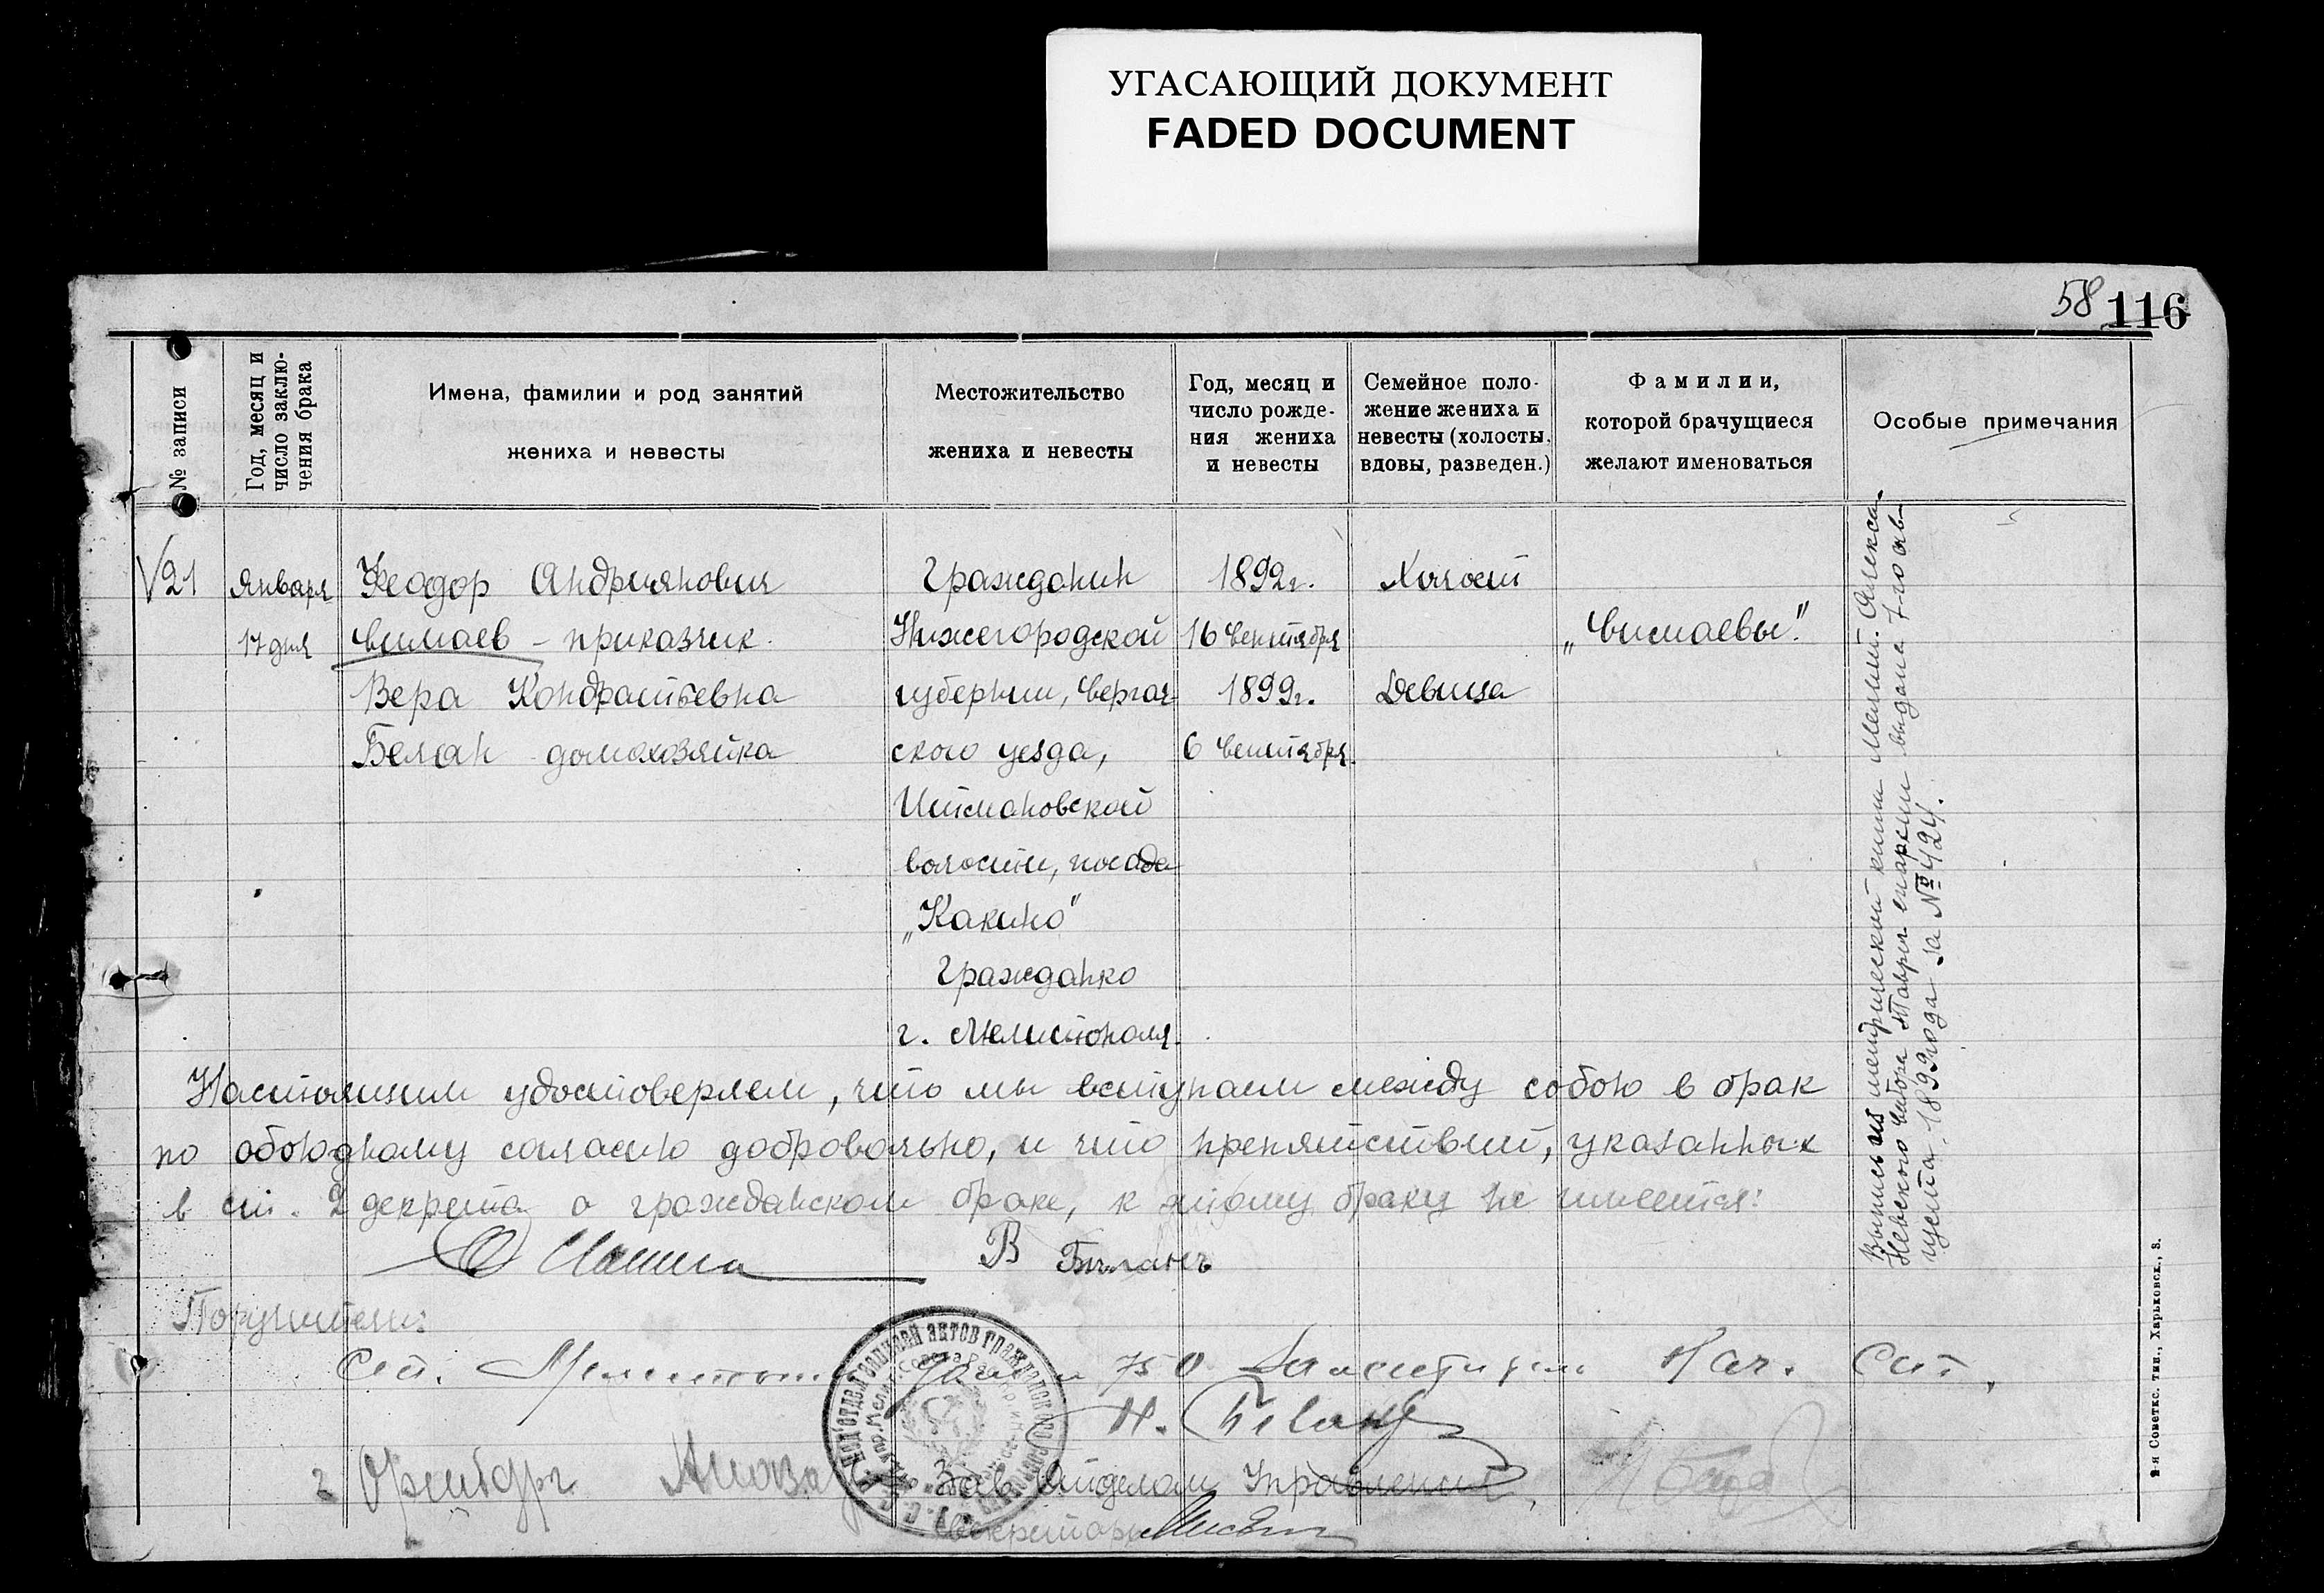 УГАСАЮЩИЙ ДОКУМЕНТ
FADED DOCUMENT
58 116
№ записи
Год, месяц и
число заклю-
чения брака
Имена, фамилии и род занятий
жениха и невесты
Местожительство
жениха и невесты
Год, месяц и
число рожде-
ния жениха
и невесты
Семейное поло-
жение жениха и
невесты (холосты,
вдовы, разведен.)
Фамилии,
которой брачущиеся
желают именоваться
Особые примечания
21
Января
17 дня
Феодор Андриянович
– приказчик.
Вера Кондратьевна
Белан домохозяйка
Гражданин
Нижегородской
губернии, Сергач-
ского уезда,
волости, посада
„Какино"
Гражданка
г. Мелитополя.
1892г.
16 Сентября
1899г.
6 Сентября.
Холост
Девица
Выпись из метрической книги Мелит. Алекса-
Невского собора Таврич. епархии выдана 7-го ав-
густа 1899 года за № 424.
Настоящим удостоверяем, что мы вступаем между собою в брак
по обоюдному согласию добровольно, и что препятствий, указанных
в ст. 2 декрета о гражданском браке, к этому браку не имеется:
В Бѣланъ
Поручители:
Ст. Нач. Ст.
Н. Белан
г Оренбург
Зав. отделом Управления,
Секретарь
2-я Советск. тип., Харьковск., 8.